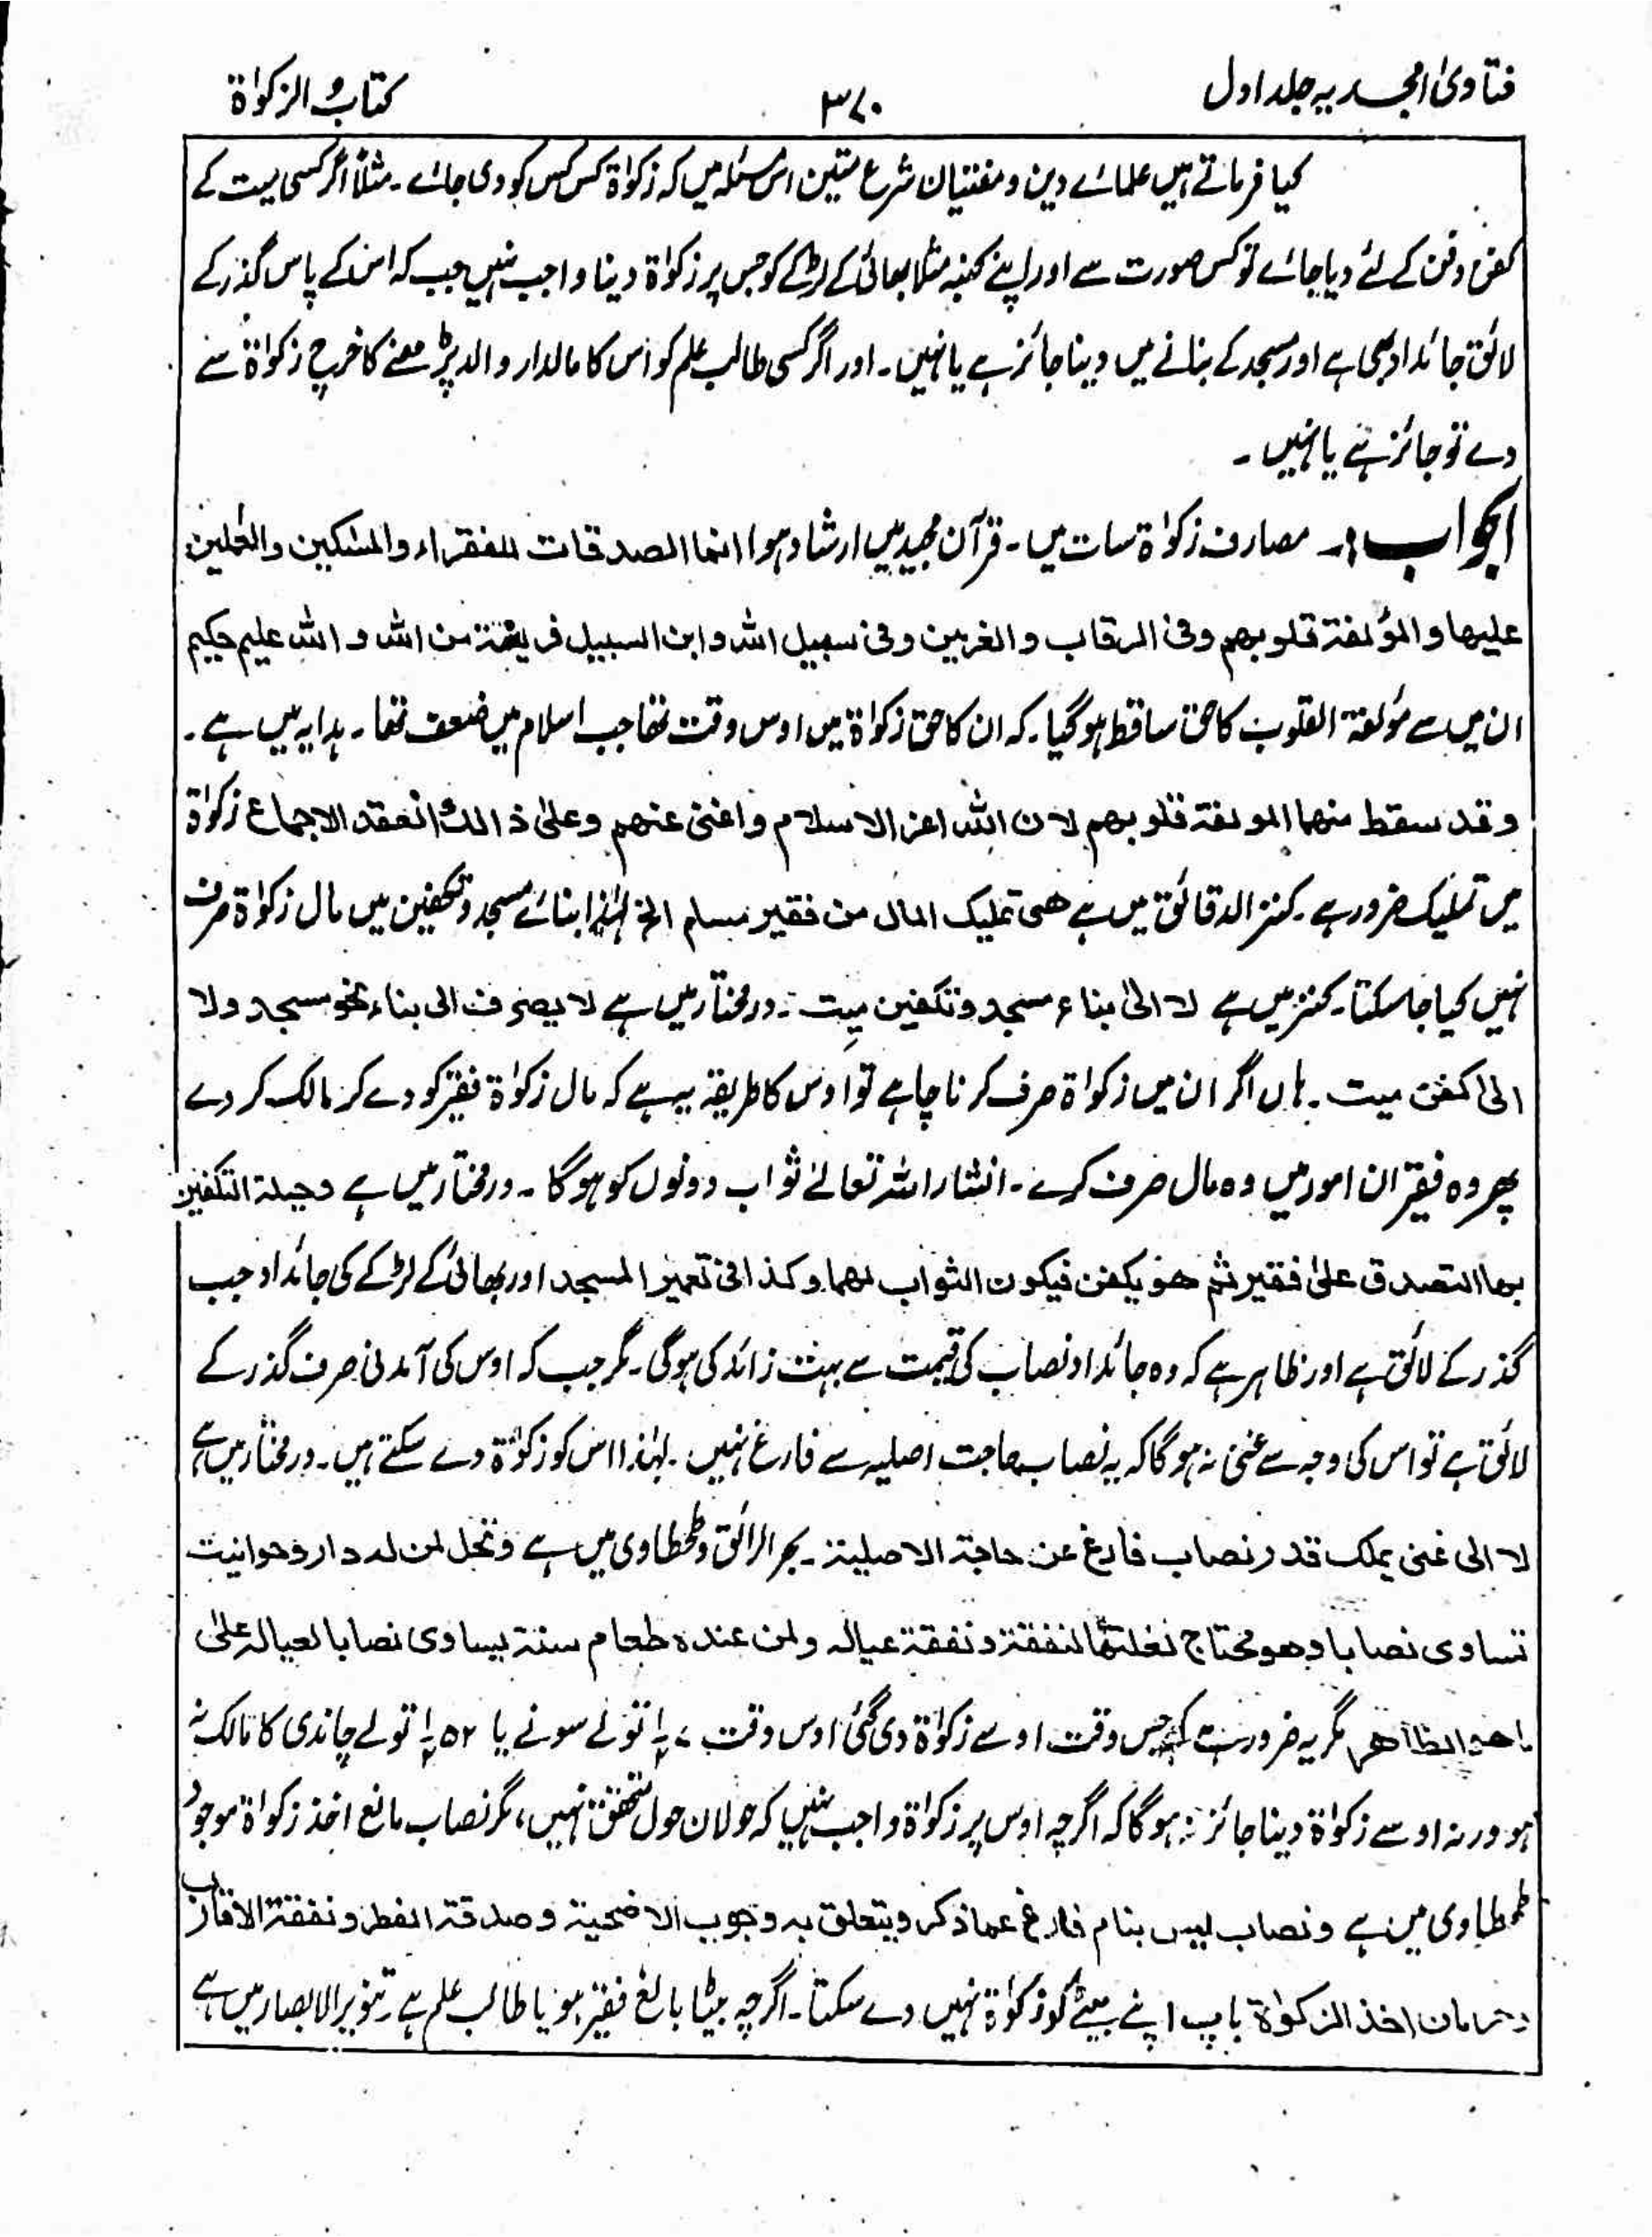 فتاویٰ امجدیہ جلد اول
۳۷۰
کتابُ الزکوٰۃ
کیا فرماتے ہیں علمائے دین و مفتیان شرع متین اس مسئلہ میں کہ زکوٰۃ کس کس کو دی جائے۔ مثلاً اگر کسی میت کے
کفن دفن کے لئے دیا جائے تو کس صورت سے اور اپنے کنبہ مثلا بھائی کے لڑکے کو جس پر زکوٰۃ دینا واجب نہیں جب کہ اس کے پاس گذر کے
لائق جائداد بھی ہے اور مسجد کے بنانے میں دینا جائز ہے یا نہیں۔ اور اگر کسی طالب علم کو اس کا مالدار والد پڑھنے کا خرچ زکوٰۃ سے
دے تو جائز ہے یا نہیں۔
الجواب:۔ مصارف زکوٰۃ سات ہیں۔ قرآن مجید میں ارشاد ہوا انما الصدقات للفقراء والمسٰکین والعٰملین
علیھا والمؤلفۃ قلوبھم وفی الرقاب والغرمین وفی سبیل اللہ وابن السبیل فریضۃ من اللہ واللہ علیم حکیم
ان میں سے مؤلفۃ القلوب کا حق ساقط ہو گیا۔ کہ ان کا حق زکوٰۃ میں اوس وقت تھا جب اسلام میں ضعف تھا۔ ہدایہ میں ہے۔
وقد سقط منھا المولفۃ قلوبھم لان اللہ اعز الاسلام واغنی عنھم وعلیٰ ذالک انعقد الاجماع زکوٰۃ
میں تملیک ضرور ہے۔ کنز الدقائق میں ہے ھی تملیک المال من فقیر مسلم الخ لہٰذا بنائے مسجد و تکفین میں مال زکوٰۃ صرف
نہیں کیا جا سکتا۔ کنز میں ہے لا الیٰ بناء مسجد وتکفین میت۔ درمختار میں ہے لا یصرف الی بناء نحو مسجد ولا
الیٰ کفن میت۔ ہاں اگر ان میں زکوٰۃ صرف کرنا چاہے تو اوس کا طریقہ یہ ہے کہ مال زکوٰۃ فقیر کو دے کر مالک کر دے
پھر وہ فقیر ان امور میں وہ مال صرف کرے۔ انشاء اللہ تعالےٰ ثواب دونوں کو ہوگا۔ درمختار میں ہے وحیلۃ التکفین
بھا التصدق علیٰ فقیر ثم ھو یکفن فیکون الثواب لھما وکذا فی تعمیر المسجد اور بھائی کے لڑکے کی جائداد جب
گذر کے لائق ہے اور ظاہر ہے کہ وہ جائداد نصاب کی قیمت سے بہت زائد کی ہوگی۔ مگر جب کہ اوس کی آمدنی صرف گذر کے
لائق ہے تو اس کی وجہ سے غنی نہ ہوگا کہ یہ نصاب حاجت اصلیہ سے فارغ نہیں۔ لہٰذا اس کو زکوٰۃ دے سکتے ہیں۔ درمختار میں ہے
لا الی غنی یملک قدر نصاب فارغ عن حاجۃ الاصلیۃ۔ بحر الرائق وطحطاوی میں ہے وتحل لمن لہ دار وحوانیت
تساوی نصابا وھو محتاج لغلتھا لنفقتہ ونفقۃ عیالہ ولمن عندہ طعام سنۃ یساوی نصابا لعیالہ علیٰ
ما ھو الظاھر مگر یہ ضرور ہے کہ جس وقت اوسے زکوٰۃ دی گئی اوس وقت ۷½ تولے سونے یا ۵۲½ تولے چاندی کا مالک نہ
ہو ورنہ اوسے زکوٰۃ دینا جائز نہ ہوگا کہ اگرچہ اوس پر زکوٰۃ واجب نہیں کہ حولان حول متحقق نہیں، مگر نصاب مانع اخذ زکوٰۃ موجود
طحطاوی میں ہے ونصاب لیس بنام فارغ عما ذکر ویتعلق بہ وجوب الاضحیۃ وصدقۃ الفطر ونفقۃ الاقارب
وحرمان اخذ الزکوٰۃ باپ اپنے بیٹے کو زکوٰۃ نہیں دے سکتا۔ اگرچہ بیٹا بالغ فقیر ہو یا طالب علم ہے۔ تنویر الابصار میں ہے